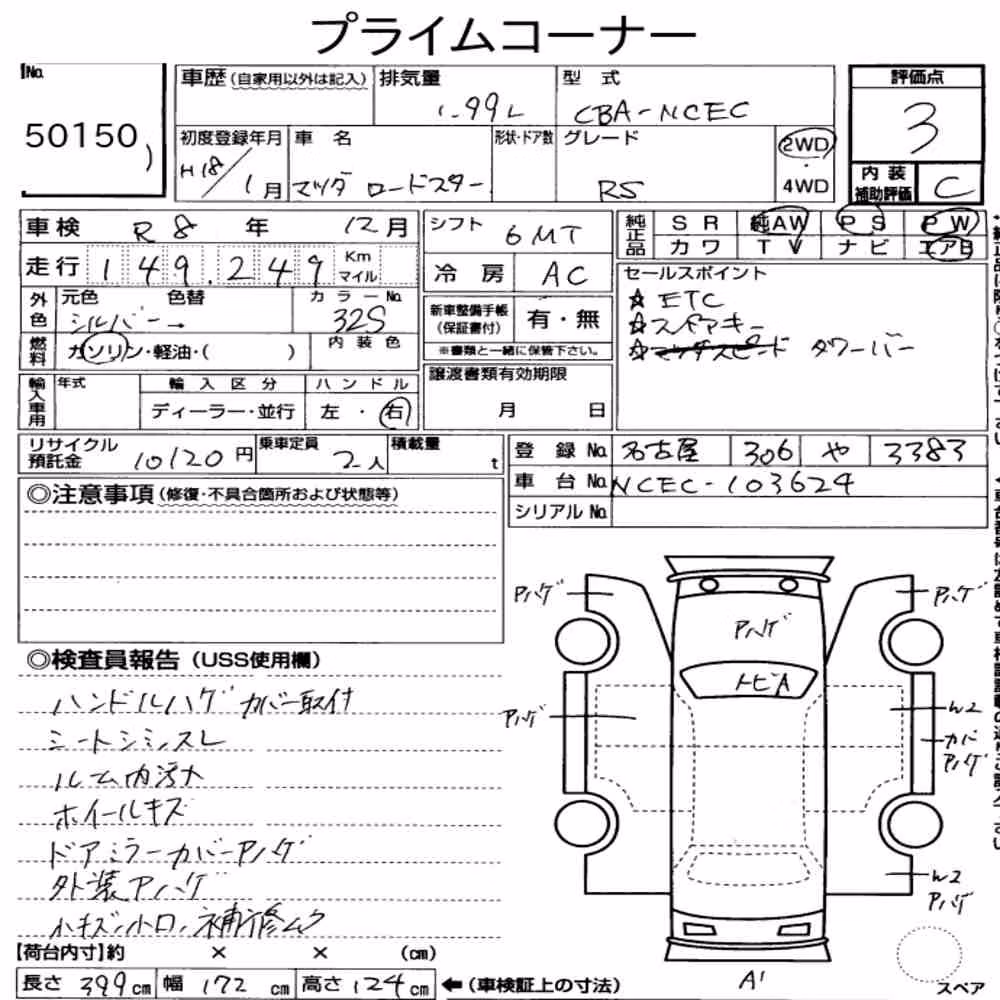 プライムコーナー
No. 50150
車歴(自家用以外は記入) 排気量 1.99L 型式 CBA-NCEC 評価点 3
初度登録年月 H18/1月 車名 マツダ ロードスター 形状・ドア数 グレード RS 2WD・4WD
内装補助評価 C
車検 R8年 12月 シフト 6MT 純正品 SR 純AW PS PW
カワ TV ナビ エアB
走行 149,249 Km マイル 冷房 AC
セールスポイント
☆ETC
☆スペアキー
☆マツダスピード タワーバー
外色 元色 シルバー 色替 → カラーNo. 32S
新車整備手帳(保証書付) 有・無
※書類と一緒に保管下さい。
燃料 ガソリン・軽油・( ) 内装色
輸入車用 年式 輸入区分 ディーラー・並行 ハンドル 左・右
譲渡書類有効期限 月 日
リサイクル預託金 10120円 乗車定員 2人 積載量 t
登録No. 名古屋 306 や 3383
車台No. NCEC-103624
シリアルNo.
◎注意事項(修復・不具合箇所および状態等)
◎検査員報告(USS使用欄)
ハンドルハゲ カバー取付
シートシミ、スレ
ルーム内汚大
ホイールキズ
ドアミラーカバーアハゲ
外装アハゲ
小キズ、小ロ、補修ムラ
アハゲ
アハゲ
アハゲ
トビA
アハゲ
W2
カバアハゲ
W2
アハゲ
A1
スペア
【荷台内寸】約 × × (cm)
長さ 399cm 幅 172cm 高さ 124cm ←(車検証上の寸法)